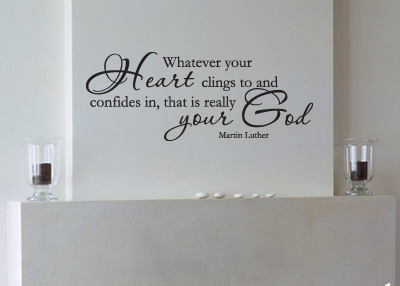 Whatever your
Heart clings to and
confides in, that is really
your God
Martin Luther